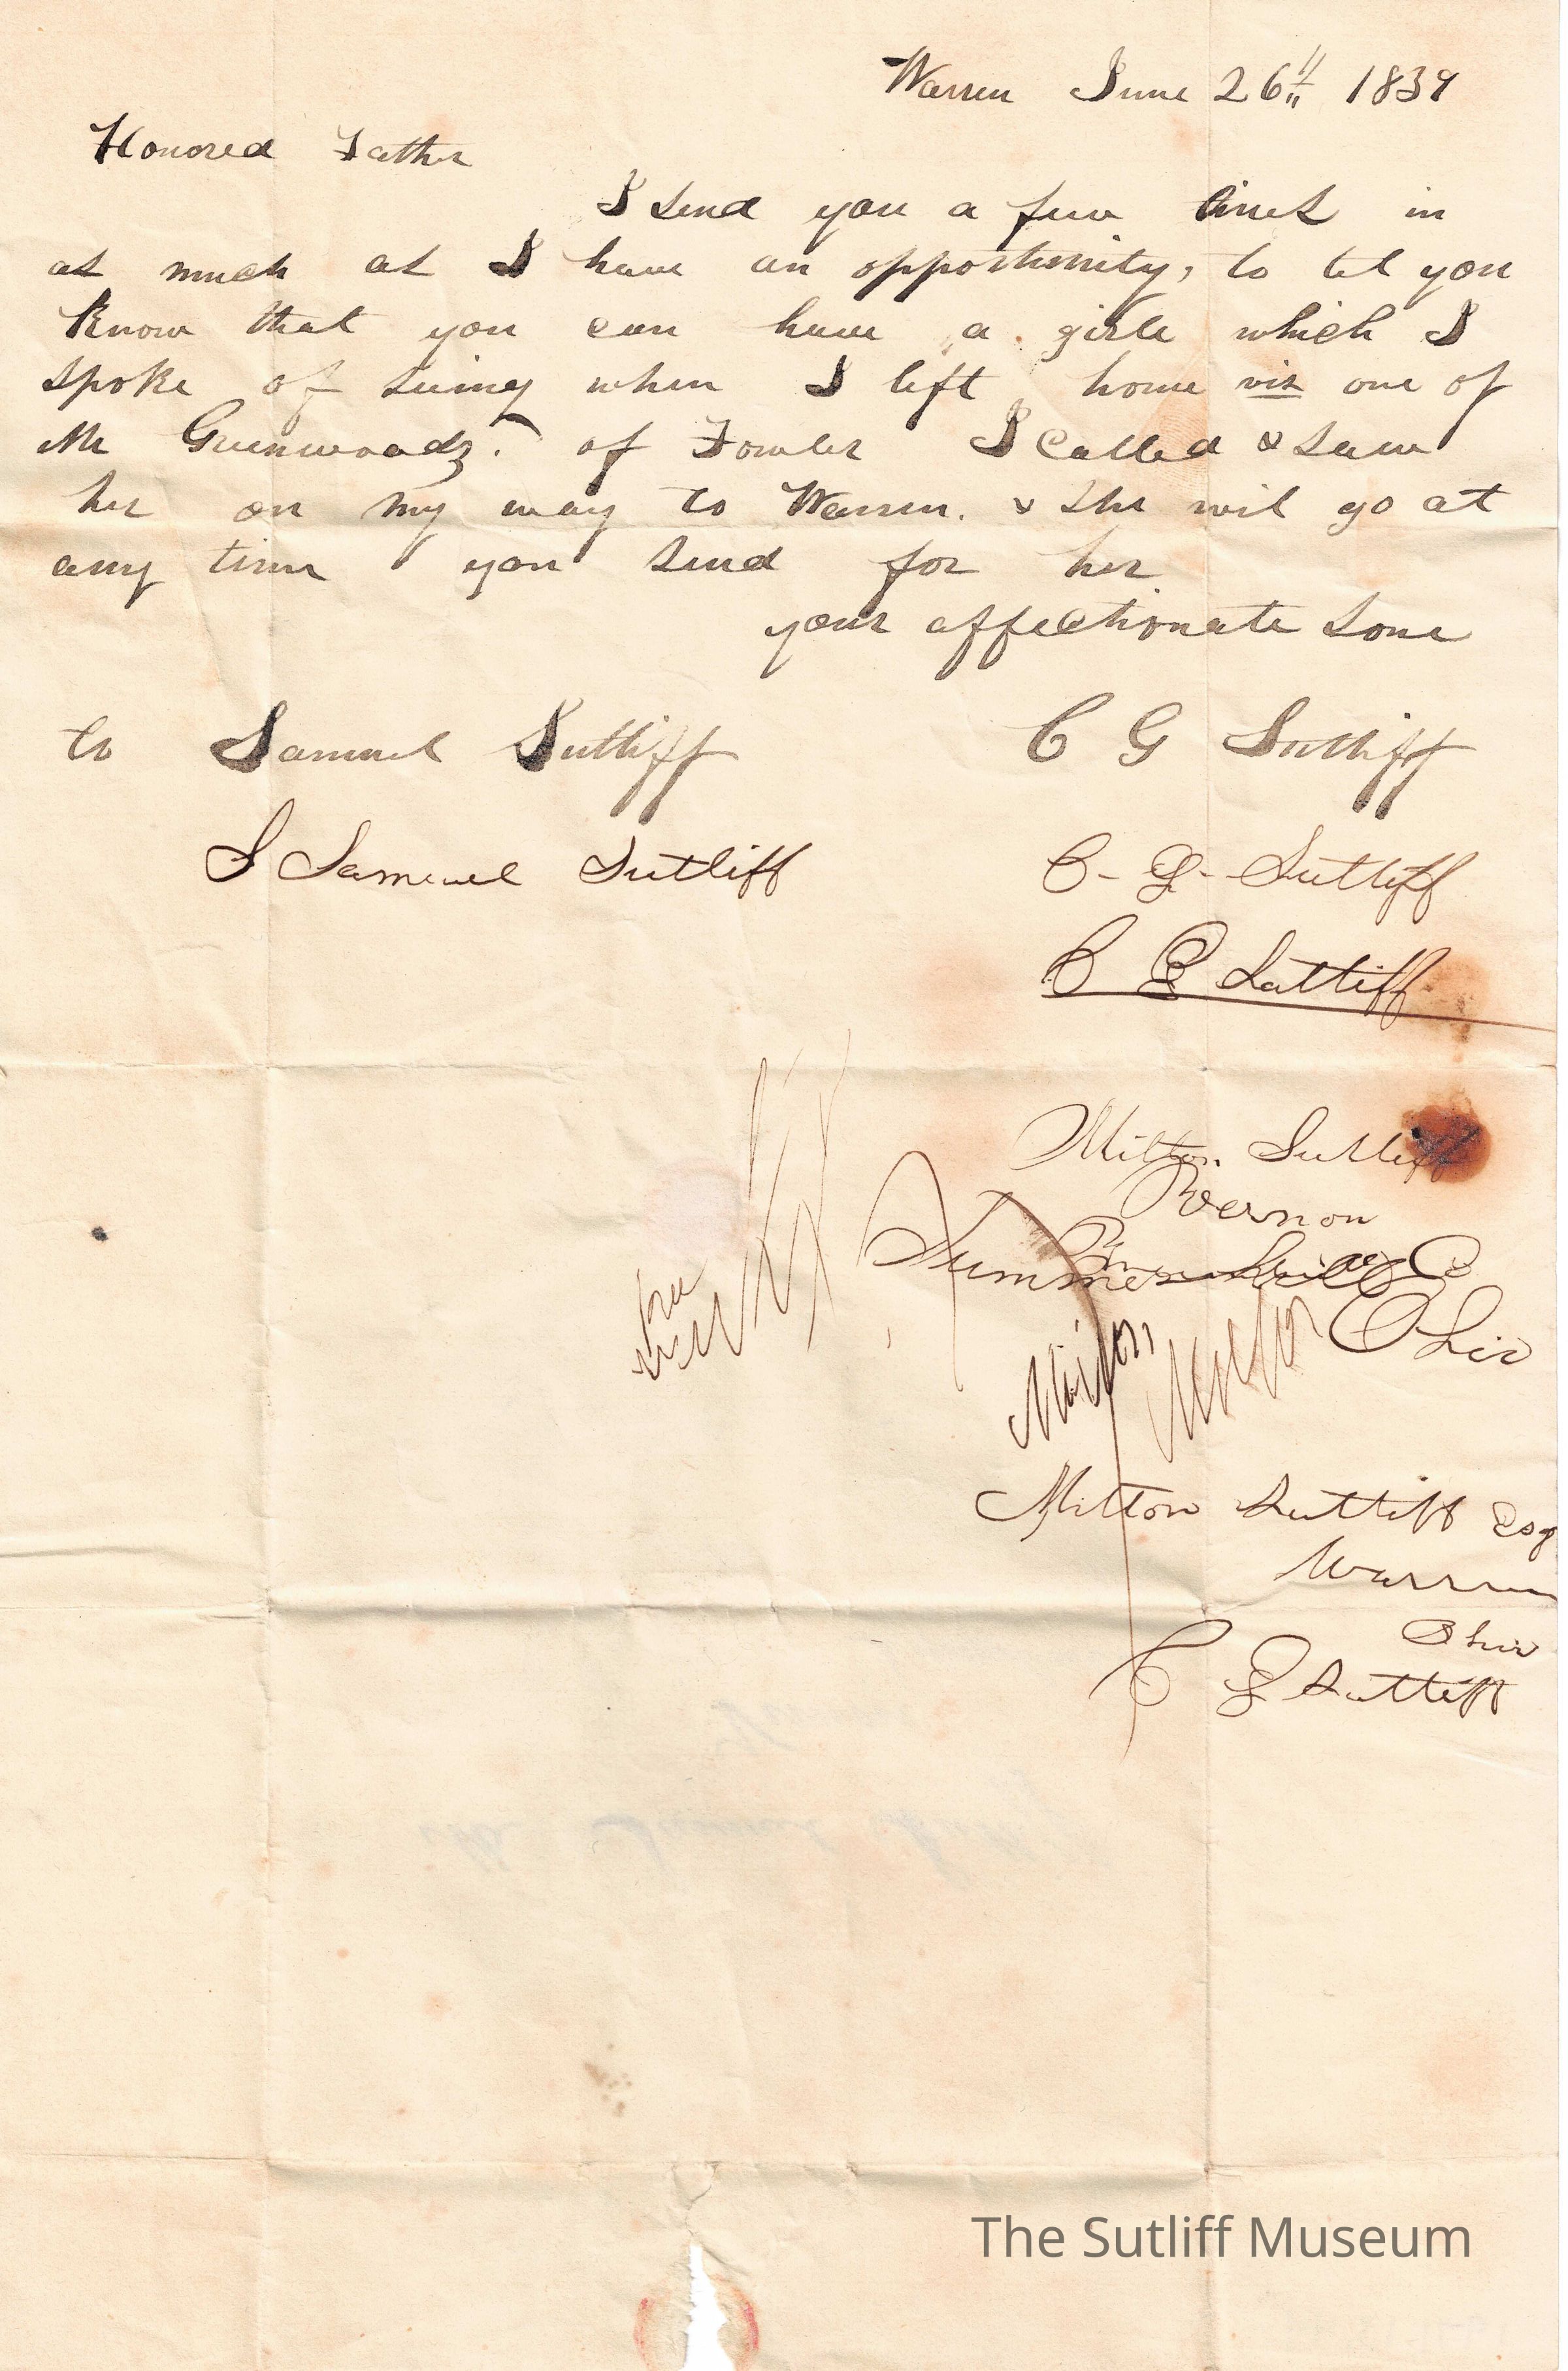 Warren June 26th 1839
Honored Father
I send you a few lines in
as much as I have an opportunity, to let you
know that you can have a girle which I
spoke of seeing when I left home viz one of
Mr Greenwoods. of Fowler I Called & saw
her on my way to Warren. & she wil go at
any time you send for her
your affectionate sone
to Samuel Sutliff C G Sutliff
S Samuel Sutliff C- G- Sutliff
C G Sutliff
Milton Sutliff
Vernon
Ohio
Milton Milton
Milton Sutliff Esq
Warren
Ohio
C G Sutliff
The Sutliff Museum